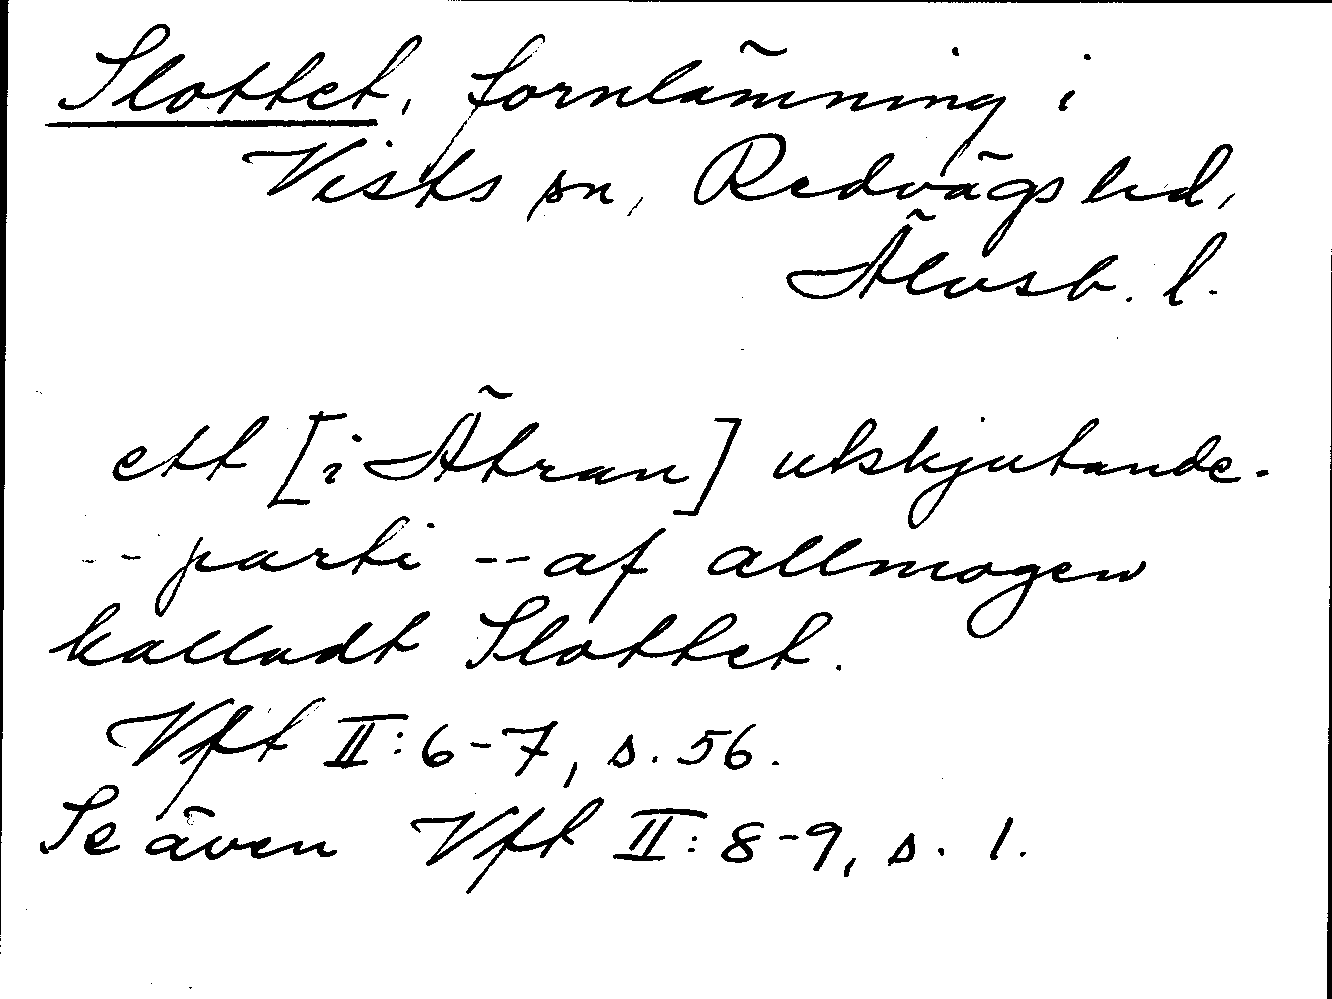 Slottet, fornlämning i
Vists sn, Redvägs hd,
Älvsb. l.
ett [i Ätran] utskjutande -
-- parti -- af allmogen
kalladt Slottet.
Vft II: 6-7, s. 56.
Se även Vft II: 8-9, s. 1.